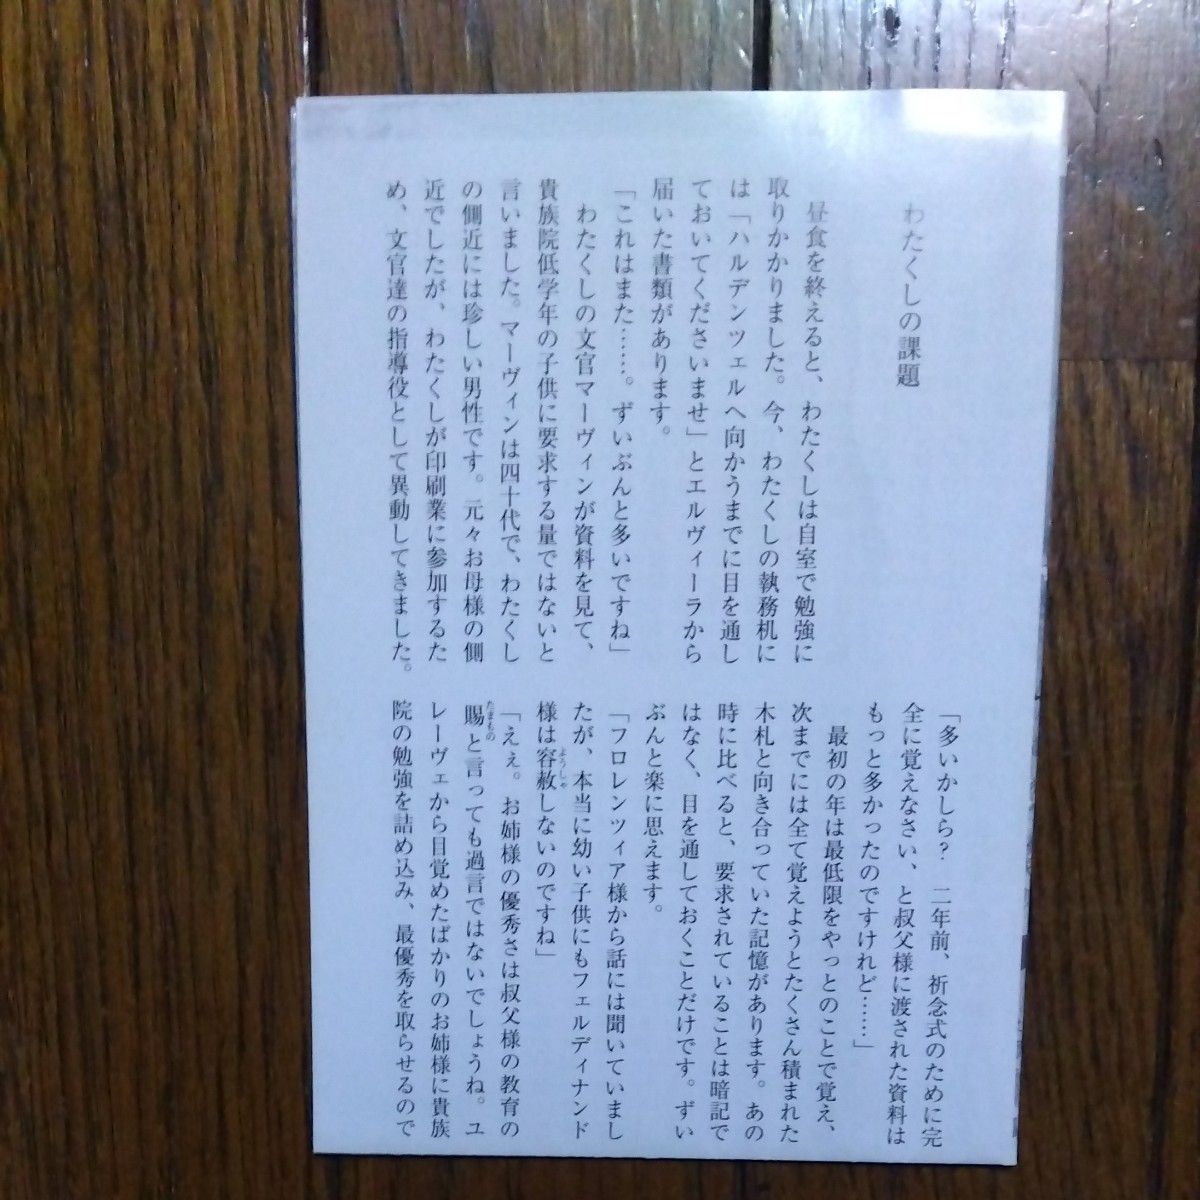 わたくしの課題
昼食を終えると、わたくしは自室で勉強に
取りかかりました。今、わたくしの執務机に
は「ハルデンツェルへ向かうまでに目を通し
ておいてくださいませ」とエルヴィーラから
届いた書類があります。
「これはまた……。ずいぶんと多いですね」
わたくしの文官マーヴィンが資料を見て、
貴族院低学年の子供に要求する量ではないと
言いました。マーヴィンは四十代で、わたくし
の側近には珍しい男性です。元々お母様の側
近でしたが、わたくしが印刷業に参加するた
め、文官達の指導役として異動してきました。
「多いかしら？　二年前、祈念式のために完
全に覚えなさい、と叔父様に渡された資料は
もっと多かったのですけれど……」
最初の年は最低限をやっとのことで覚え、
次までには全て覚えようとたくさん積まれた
木札と向き合っていた記憶があります。あの
時に比べると、要求されていることは暗記で
はなく、目を通しておくことだけです。ずい
ぶんと楽に思えます。
「フロレンツィア様から話には聞いていまし
たが、本当に幼い子供にもフェルディナンド
様は容赦しないのですね」
「えぇ。お姉様の優秀さは叔父様の教育の
賜と言っても過言ではないでしょうね。ユ
レーヴェから目覚めたばかりのお姉様に貴族
院の勉強を詰め込み、最優秀を取らせるので